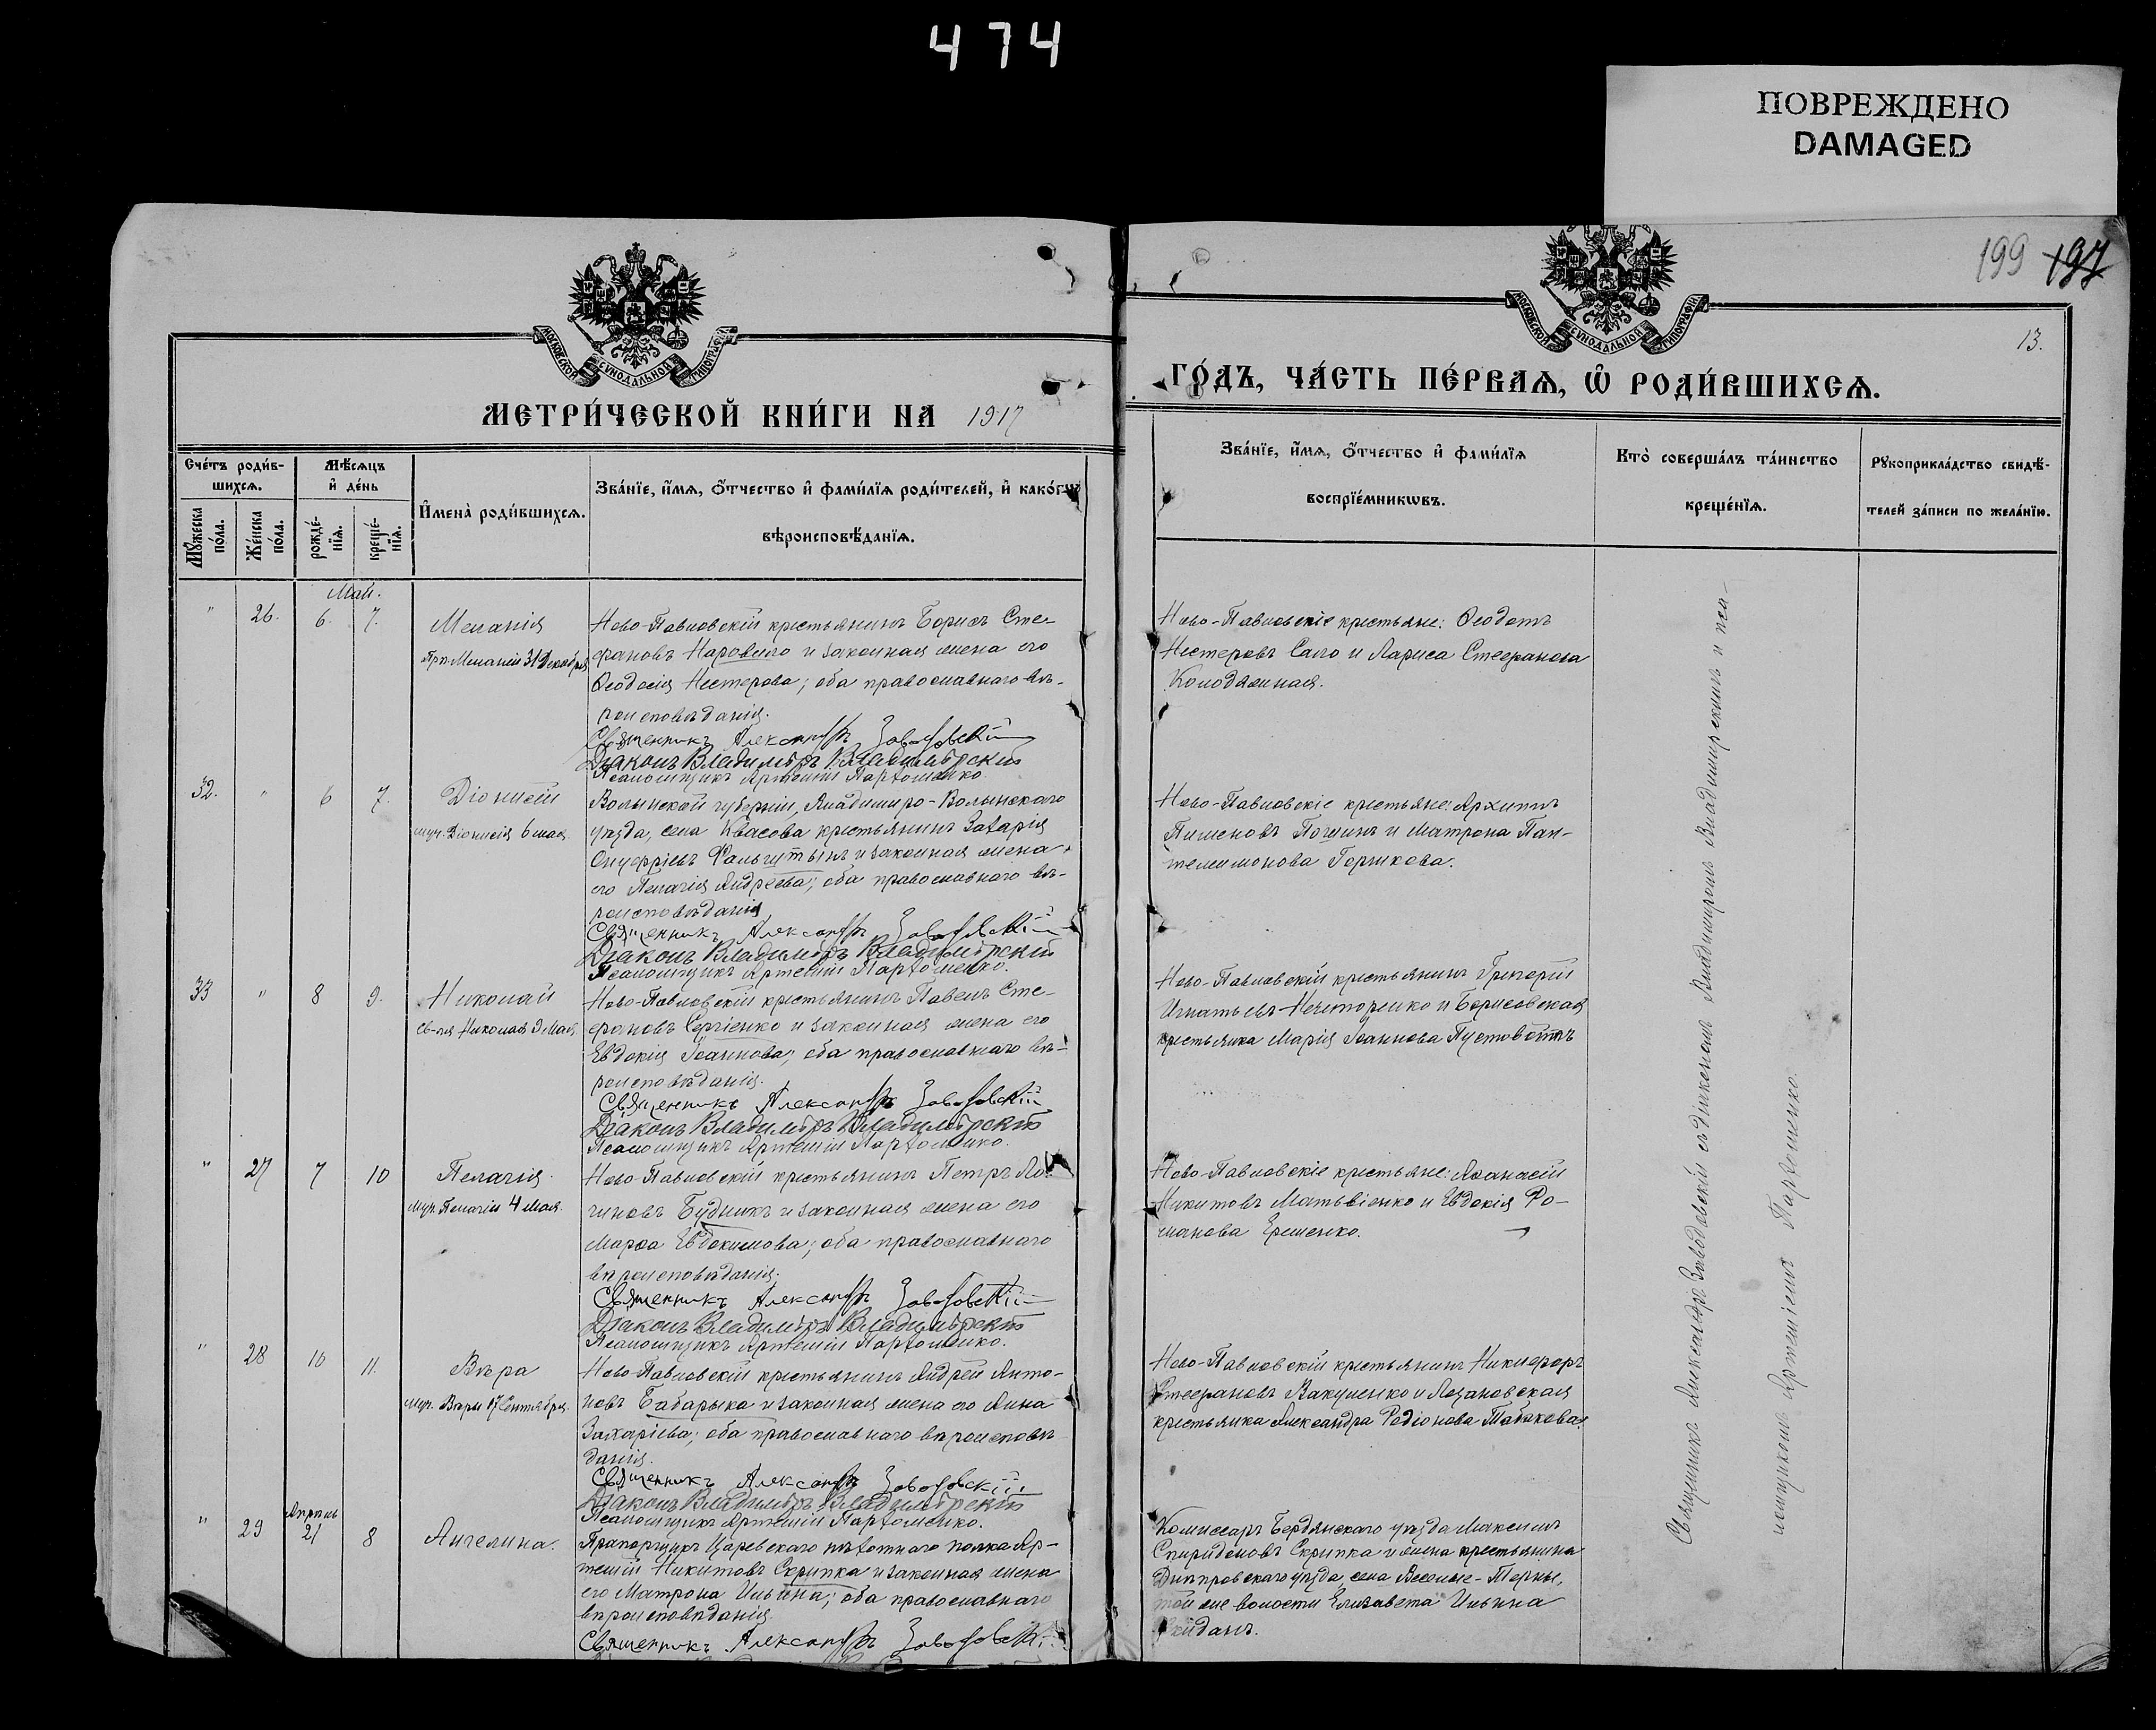 474
ПОВРЕЖДЕНО
DAMAGED
199 197
13.
МОСКОВСКОЙ СѴНОДАЛЬНОЙ ТИПОГРАФІИ
МОСКОВСКОЙ СѴНОДАЛЬНОЙ ТИПОГРАФІИ
МЕТРИ́ЧЕСКОЙ КНИ́ГИ НА 1917
ГО́ДЪ, ЧА́СТЬ ПЕ́РВАѦ, Ѽ РОДИ́ВШИХСѦ.
Сче́тъ роди́в-
шихсѧ.
Мꙋ́жеска по́ла.
Же́нска по́ла.
Мѣ́сѧцъ
и҆ де́нь
рожде́-
нїѧ.
креще́-
нїѧ.
И҆мена̀ роди́вшихсѧ.
Зва́нїе, и҆́мѧ, ѻ҆́тчество и҆ фами́лїѧ роди́телей, и҆ како́гѡ
вѣроисповѣ́данїѧ.
Зва́нїе, и҆́мѧ, ѻ҆́тчество и҆ фами́лїѧ
воспрїе́мникѡвъ.
Кто̀ соверша́лъ та́инство
креще́нїѧ.
Рꙋкоприкла́дство свидѣ́-
телей за́писи по жела́нїю.
Май.
" 26. 6. 7. Меланія
Прп. Меланіи 31 Декабря
Ново-Павловскій крестьянинъ Борисъ Сте-
фановъ Наровило и законная жена его
Ѳеодосія Нестерова; оба православнаго вѣ-
роисповѣданія.
Священникъ Александръ Заводовскій
Діаконъ Владиміръ Владимірскій
Псаломщикъ Артемій Пархоменко.
Ново-Павловскіе крестьяне: Ѳеодотъ
Нестеровъ Сало и Лариса Стефанова
Колодяжная.
32. " 6 7. Діонисій
муч. Діонисія 6 мая.
Волынской губерніи, Владиміро-Волынскаго
уѣзда, села Квасова крестьянинъ Захарія
Онуфріевъ Фальгутынъ и законная жена
его Пелагія Андреева; оба православнаго вѣ-
роисповѣданія
Священникъ Александръ Заводовскій
Діаконъ Владиміръ Владимірскій
Псаломщикъ Артемій Пархоменко.
Ново-Павловскіе крестьяне: Архипъ
Пименовъ и Матрона Пан-
телеимонова Горшкова.
33 " 8 9. Николай
св-ля Николая 9 Мая
Ново-Павловскій крестьянинъ Павелъ Сте-
фановъ Сергіенко и законная жена его
Евдокія Іоаннова; оба православнаго вѣ-
роисповѣданія.
Священникъ Александръ Заводовскій
Діаконъ Владиміръ Владимірскій
Псаломщикъ Артемій Пархоменко.
Ново-Павловскій крестьянинъ Григорій
Игнатьевъ Нечипоренко и Борисовская
крестьянка Марія Іоаннова Пустовойтъ
" 27 7 10 Пелагія.
муч. Пелагіи 4 Мая.
Ново-Павловскій крестьянинъ Петръ Ло-
гиновъ Будникъ и законная жена его
Марѳа Евдокимова; оба православнаго
вѣроисповѣданія.
Священникъ Александръ Заводовскій
Діаконъ Владиміръ Владимірскій
Псаломщикъ Артемій Пархоменко.
Ново-Павловскіе крестьяне: Аѳанасій
Никитовъ Матвіенко и Евдокія Ро-
манова Ерешенко.
" 28 10 11. Вѣра
муч. Вѣры 17 Сентября.
Ново-Павловскій крестьянинъ Андрей Анто-
новъ Бабарыка и законная жена его Анна
Захаріева; оба православнаго вѣроисповѣ
данія.
Священникъ Александръ Заводовскій
Діаконъ Владиміръ Владимірскій
Псаломщикъ Артемій Пархоменко.
Ново-Павловскій крестьянинъ Никифоръ
Стефановъ Вакуленко и
крестьянка Александра Родіонова Табакова.
Апрѣль
" 29 21 8 Ангелина.
Прапорщикъ Царевскаго пѣхотнаго полка Ар-
темій Никитовъ Скрипка и законная жена
его Матрона Ильина; оба православнаго
вѣроисповѣданія.
Священникъ Александръ Заводовскій
Комиссаръ Бердянскаго уѣзда Максимъ
Спиридоновъ Скрипка и жена крестьянина
Днѣпровскаго уѣзда, села Веселые-Терны,
той же волости Елизавета Ильина
Священникъ Александръ Заводовскій съ діакономъ Владиміромъ Владимірскимъ и пса-
ломщикомъ Артеміемъ Пархоменко.